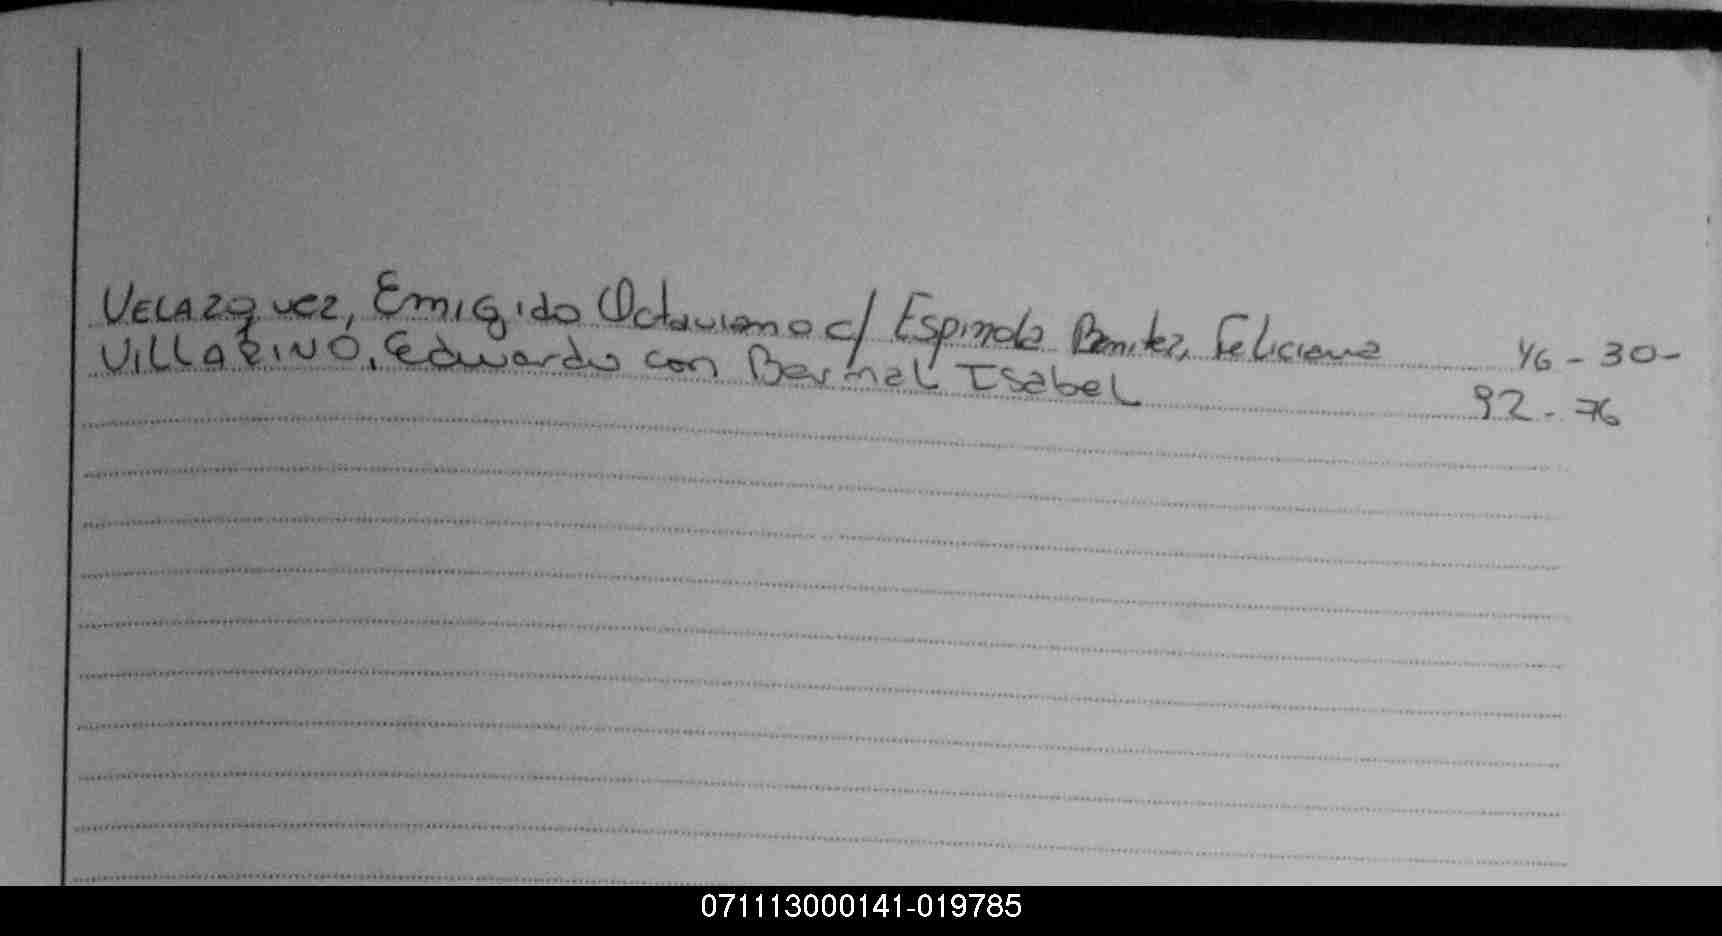 VELAZQUEZ, Emigido Octaviano c/ Espinola Benitez, Feliciana 46 - 30 -
VILLARINO, Eduardo con Bernal Isabel 92 - 76
071113000141-019785